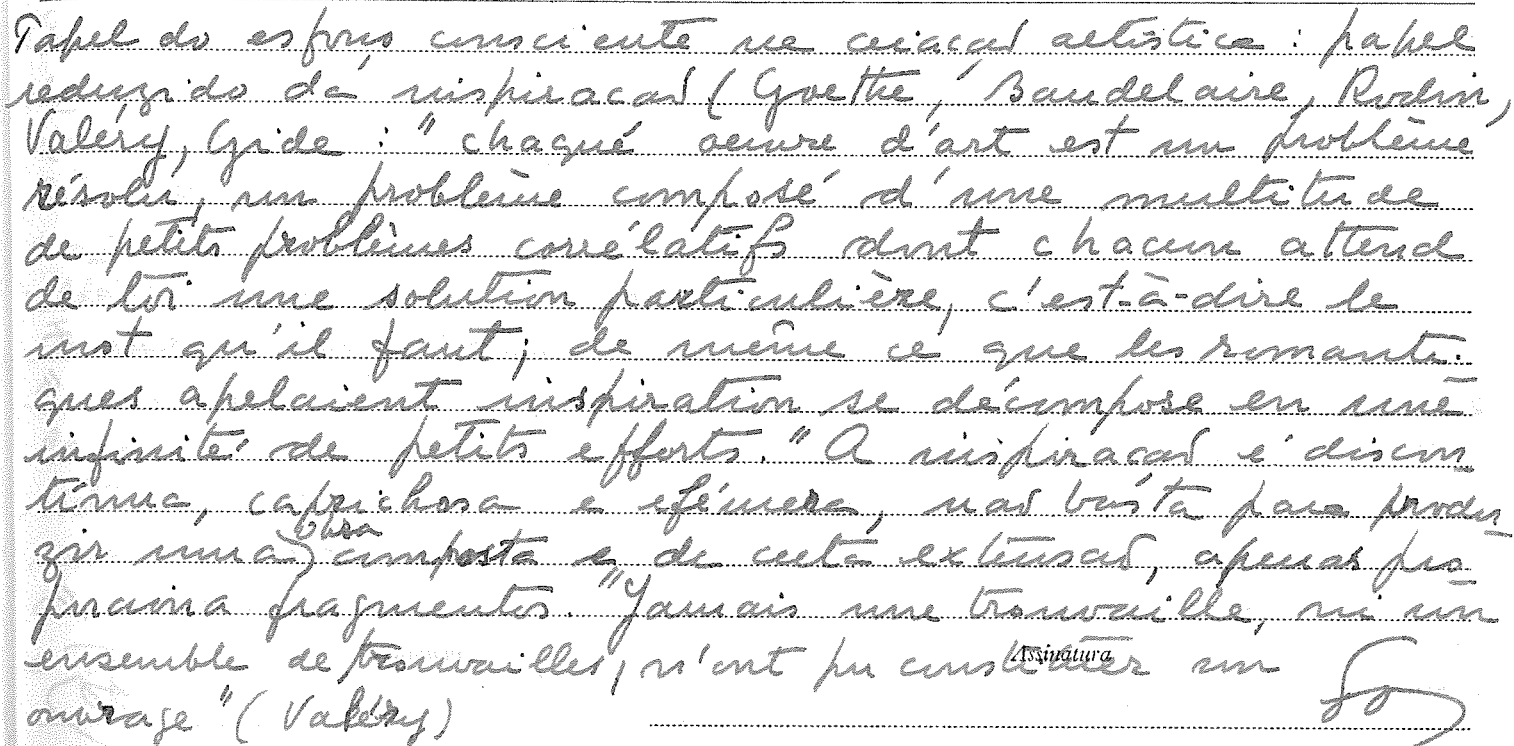 Papel do esforço consciente na criação artística: papel
reduzido da inspiração (Goethe, Baudelaire, Rodin,
Valéry, Gide: "chaque oeuvre d'art est un problème
résolu, un problème composé d'une multitude
de petits problèmes corrélatifs dont chacun attend
de toi une solution particulière, c'est-à-dire le
mot qu'il faut; de même ce que les romanti-
ques apelaient inspiration se décompose en une
infinité de petits efforts." A inspiração é descon
tínua, caprichosa e efémera, não basta para produ
zir uma obra composta e de certa extensão, apenas pro
porciona fragmentos. "Jamais une trouvaille, ni un
ensemble de trouvailles, n'ont pu constituer un
Assinatura
ouvrage" (Valéry)